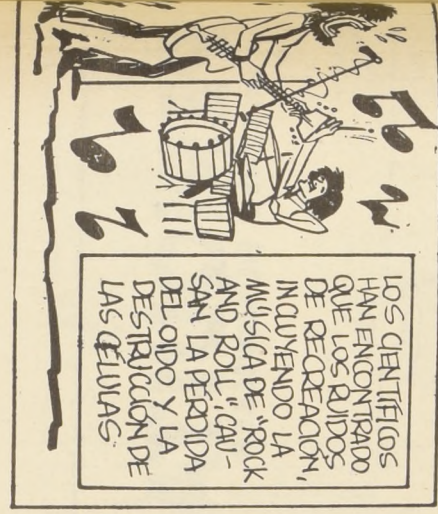 LOS CIENTÍFICOS
HAN ENCONTRADO
QUE LOS RUIDOS
DE RECREACIÓN,
INCLUYENDO LA
MUSICA DE "ROCK
AND ROLL", CAU-
SAN LA PERDIDA
DEL OIDO Y LA
DESTRUCCIÓN DE
LAS CÉLULAS